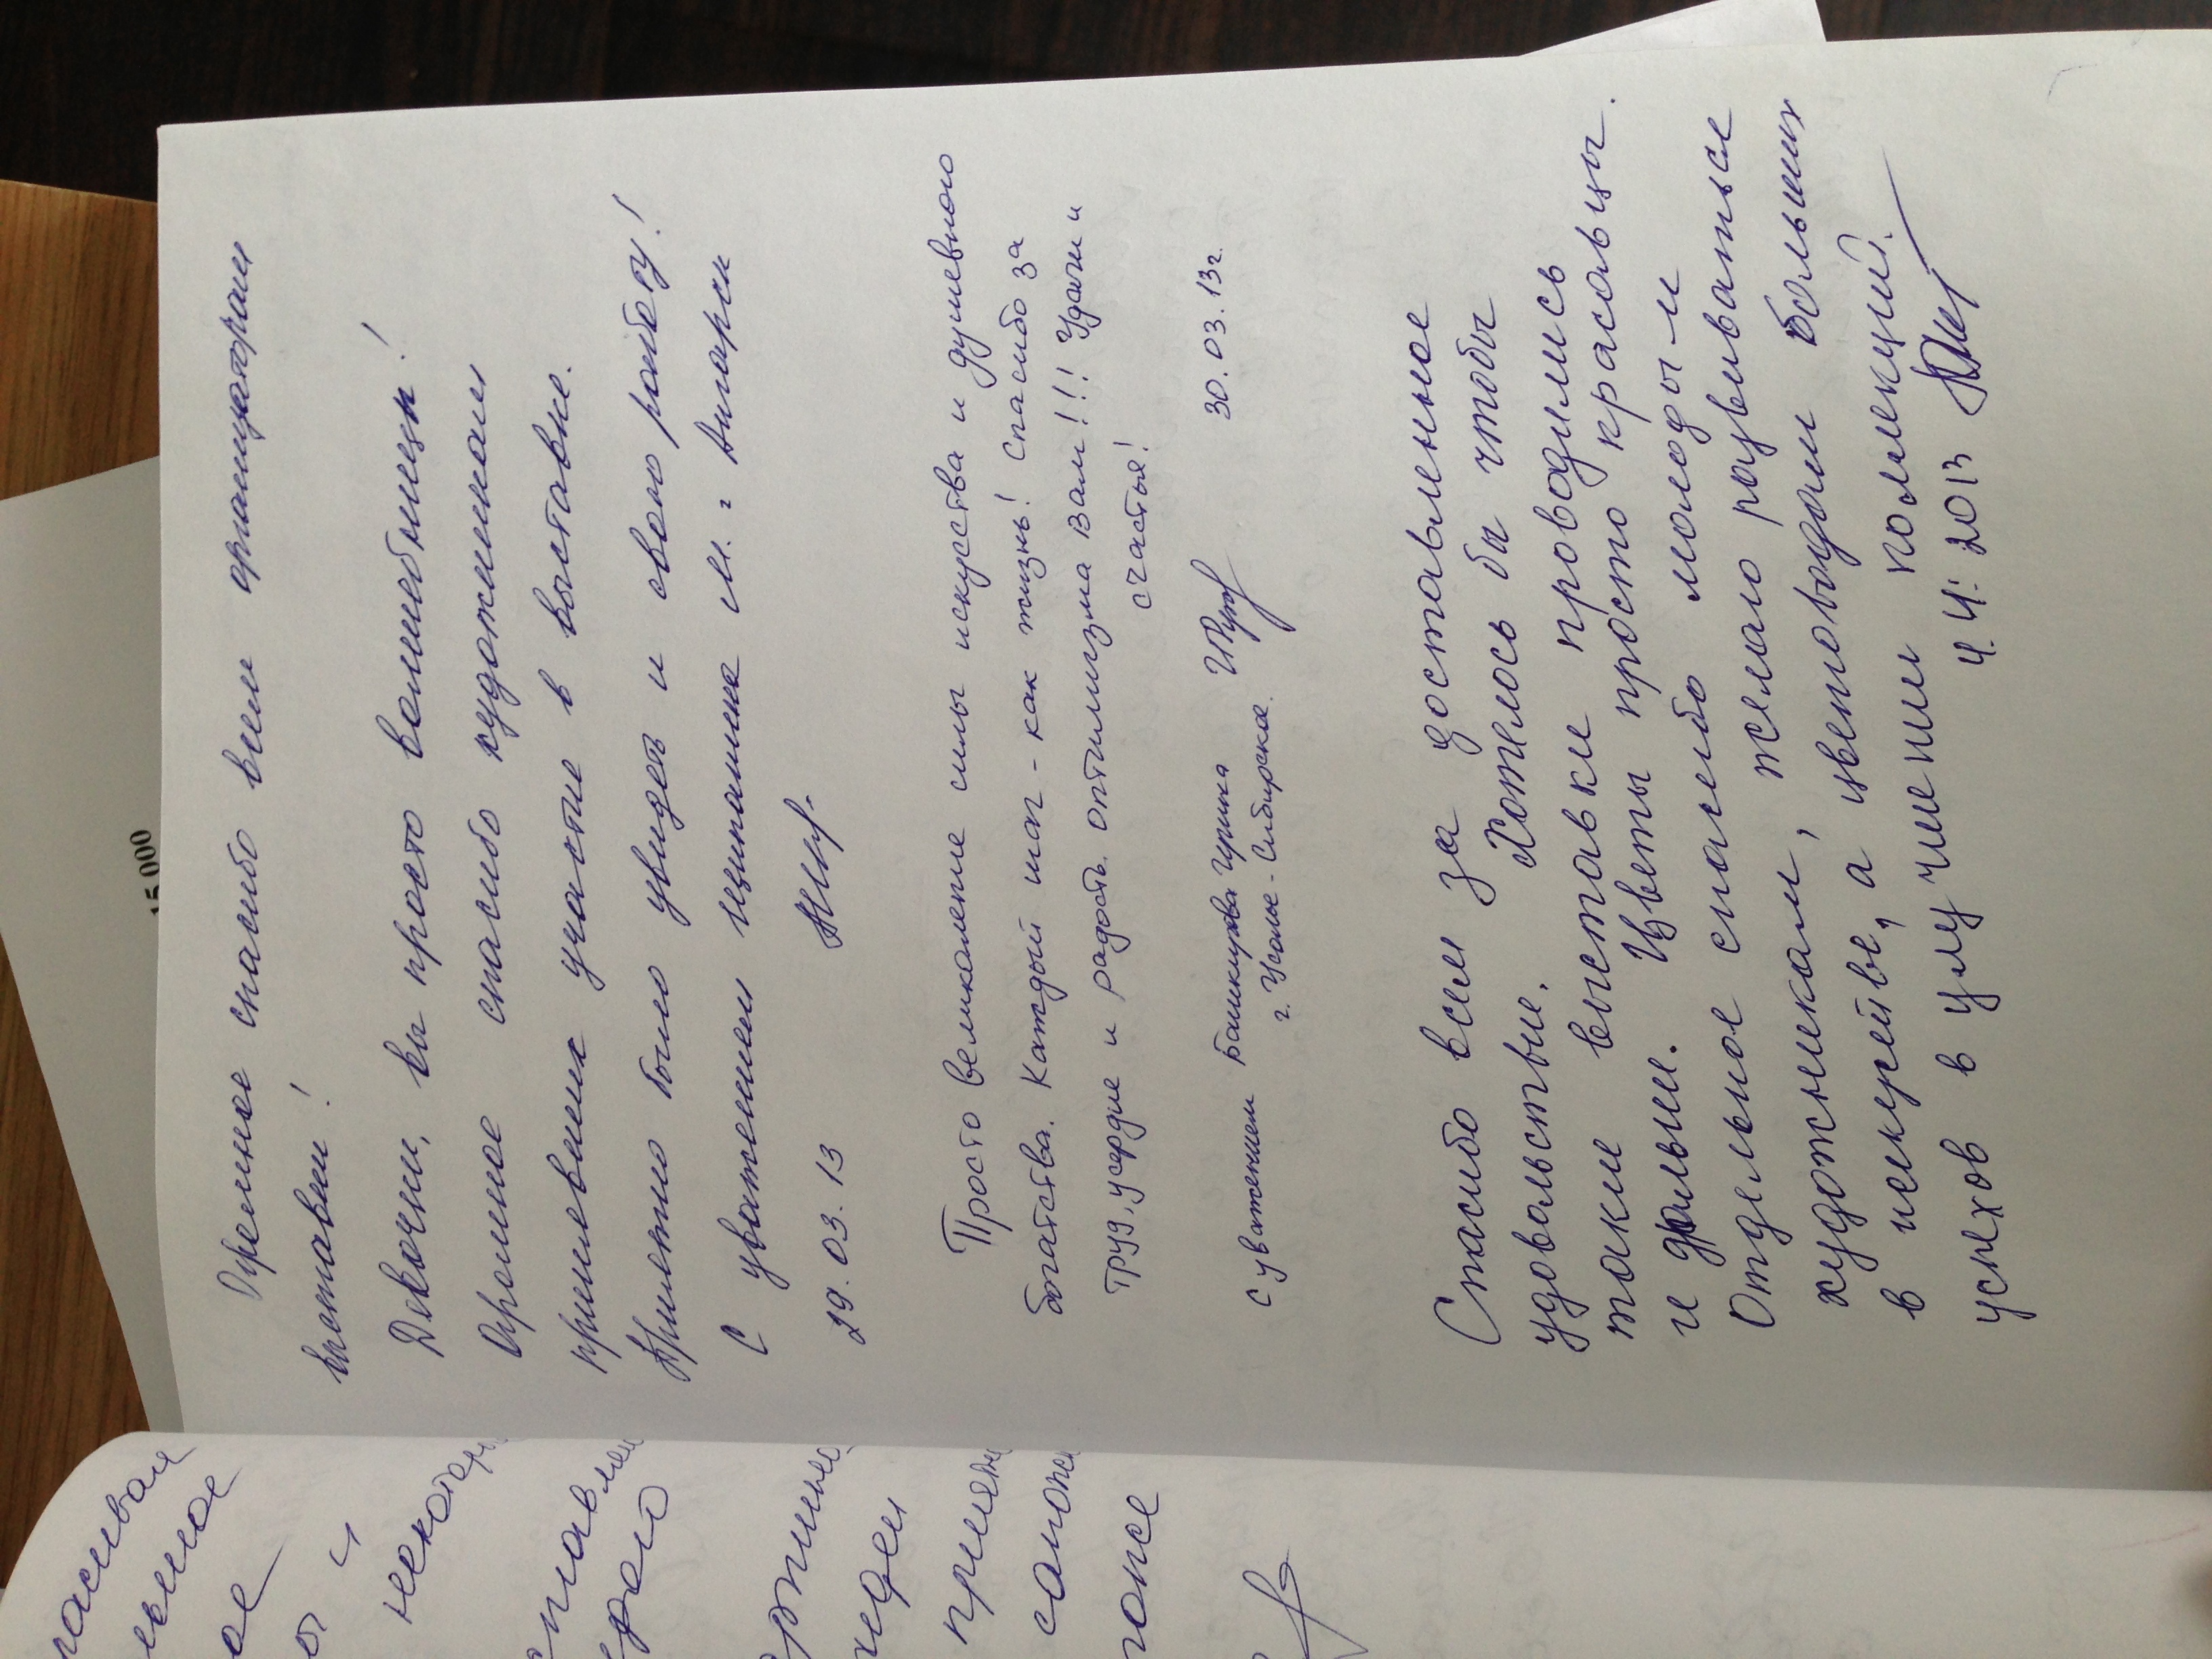 Огромное спасибо всем организаторам
выставки!
Девочки, вы просто волшебницы!
Огромное спасибо художникам
принявших участие в выставке.
Приятно было увидеть и свою работу!
С уважением м. г. Ангарск
29.03.13
Просто великолепие силы искуства и душевного
богатства. Каждый шаг - как жизнь! Спасибо за
труд, усердие и радость оптимизма Вам!!! Удачи и
счастья!
С уважением Башкирова Ирина 30.03.13г.
г. Усолье-Сибирское.
Спасибо всем за доставленное
удовольствие. Хотелось бы чтобы
такие выставки проводились
и дальше. Цветы просто красавцы.
Отдельное спасибо молодым
художникам, желаю развиваться
в искусстве, а цветоводам больших
успехов в улучшении коллекций.
4.4.2013
15 000
некотор
прият